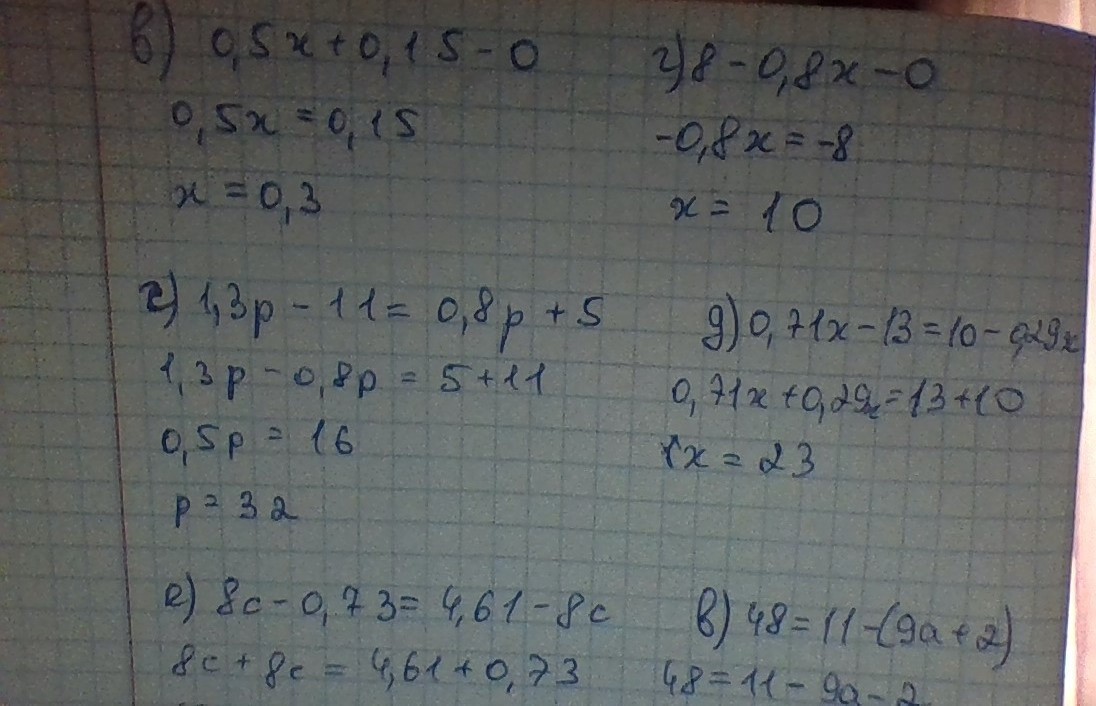 в) 0,5x+0,15-0
0,5x=0,15
x=0,3
г) 8-0,8x-0
-0,8x=-8
x=10
г) 1,3p-11=0,8p+5
1,3p-0,8p=5+11
0,5p=16
p=32
д) 0,71x-13=10-0,29x
0,71x+0,29x=13+10
1x=23
е) 8c-0,73=4,61-8c
8c+8c=4,61+0,73
в) 48=11-(9a+2)
48=11-9a-2